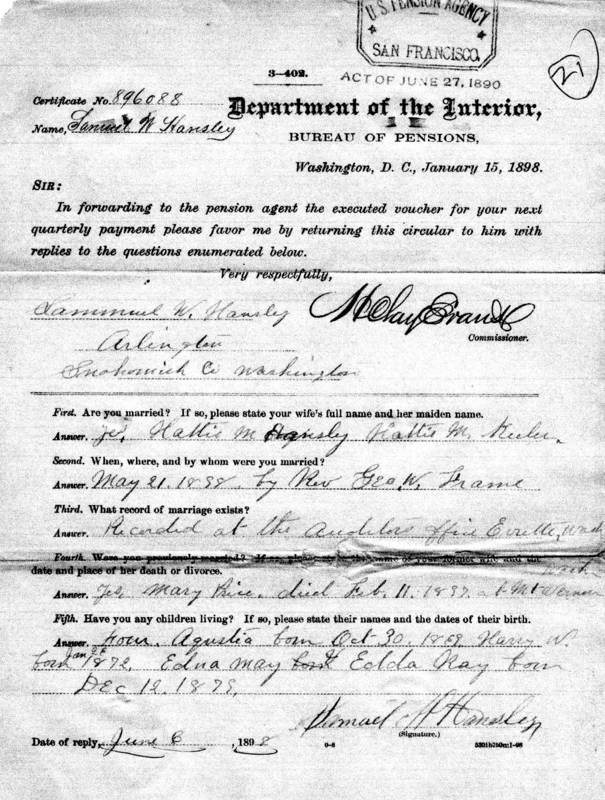 U.S. PENSION AGENCY
SAN FRANCISCO.
3-402.
ACT OF JUNE 27, 1890
21
Certificate No. 896088
Department of the Interior,
Name, Samuel W Hansley
BUREAU OF PENSIONS,
Washington, D. C., January 15, 1898.
SIR:
In forwarding to the pension agent the executed voucher for your next
quarterly payment please favor me by returning this circular to him with
replies to the questions enumerated below.
Very respectfully,
Sammuel W. Hansley
H Clay Evans
Commissioner.
Arlington
Snohomish Co Washington
First. Are you married? If so, please state your wife's full name and her maiden name.
Answer. Yes, Hattie M Hansley Hattie M,
Second. When, where, and by whom were you married?
Answer. May 21. 1898. by Rev Geo. W. Frame
Third. What record of marriage exists?
Answer. Recorded at the Auditors office Everette, Wash
Fourth. Were you previously married? If so, please state the name of your former wife and the
date and place of her death or divorce.
Wash
Answer. Yes, Mary Price. died Feb. 11. 1897. at Mt Vernon
Fifth. Have you any children living? If so, please state their names and the dates of their birth.
Answer. four. Agustia born Oct 30. 1869. Harry W.
born Jan 1872, Edna May & Edda Kay born
Dec 12. 1879,
Samuel W Hansley
(Signature.)
Date of reply, June 6, 1898
6-6
5301b750m1-98